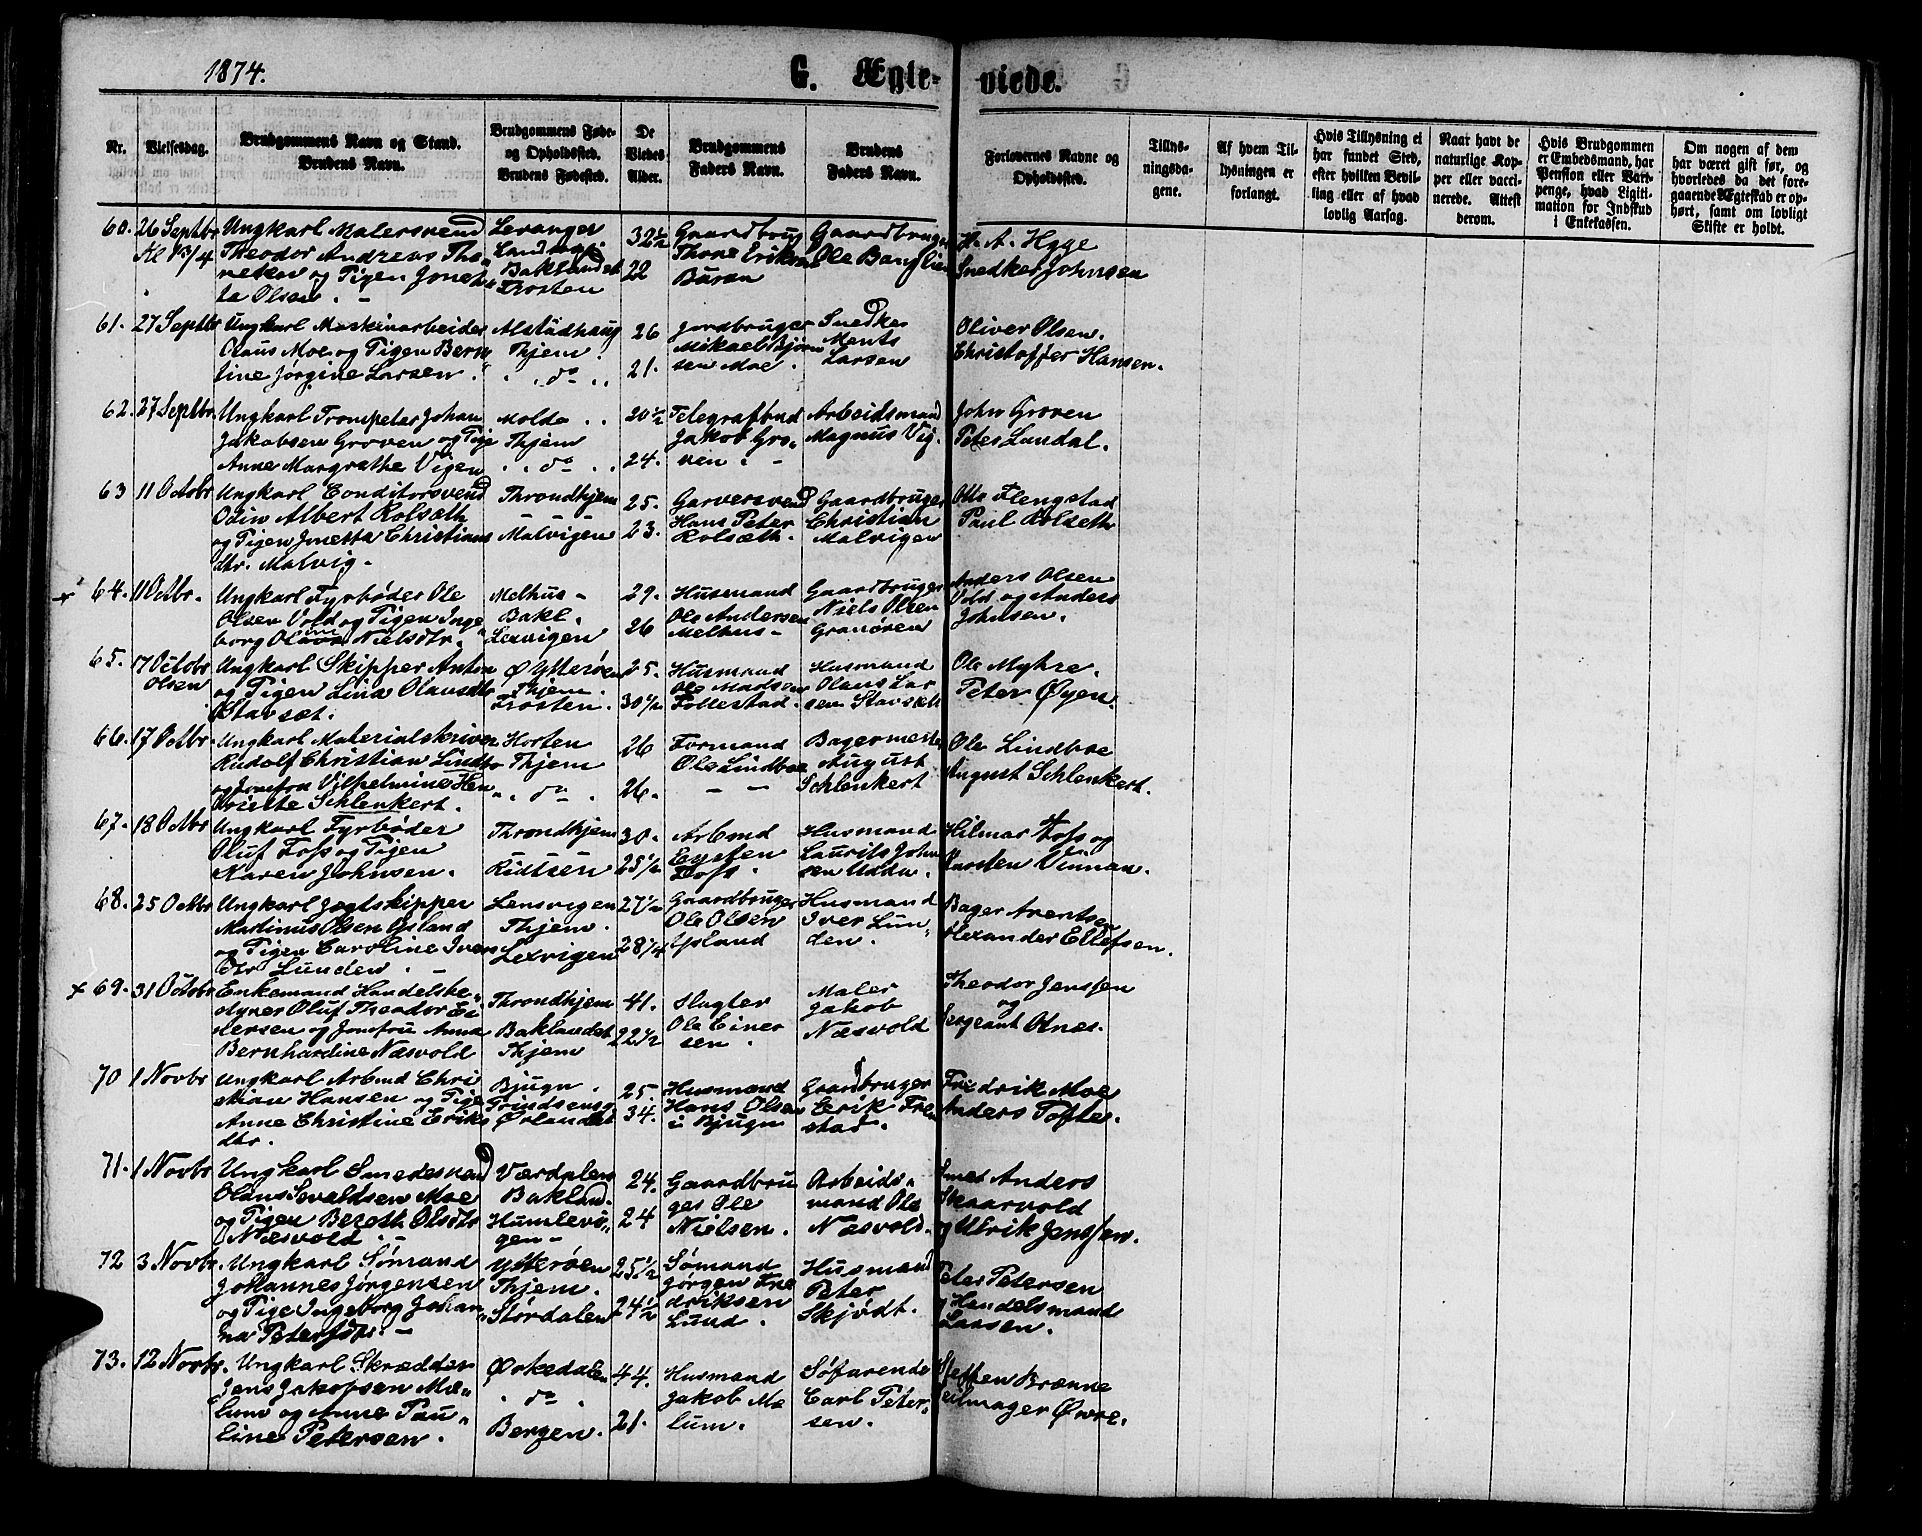 1874.
G. Ægte-viede.
Nr.
Vielsesdag.
Brudgommens Navn og Stand.
Brudens Navn.
Brudgommens Føde-
og Opholdssted.
Brudens Fødested.
De
Viedes
Alder.
Brudgommens
Faders Navn.
Brudens
Faders Navn.
Forlovernes Navne og
Opholdssted.
Tillys-
ningsda-
gene.
Af hvem Til-
lysningen er
forlangt.
Hvis Tillysning ei
har fundet Sted,
efter hvilken Bevil-
ling eller af hvad
lovlig Aarsag.
Naar havt de
naturlige Kop-
per eller vacci-
nerede. Attest
derom.
Hvis Brudgommen
er Embedsmand, har
Pension eller Vart-
penge, hvad Ligiti-
mation for Indskud
i Enkekassen.
Om nogen af dem
har været gift før, og
hvorledes da det fore-
gaaende Ægteskab er op-
hørt, samt om lovligt
Skifte er holdt.
60. 26 Septbr
Ungkarl Malersvend
Theodor Andreas Tho-
nesen og Pigen Jonet-
ta Olsen. -
Levanger
Baklandet
Frosten
32 1/2
22
Gaardbrug
Thone Eriksen
Buran
Gaardbruger
Ole Banglien
H. A. Hyge
Snedker Johnsen
61. 27 Septbr
Ungkarl Maskinarbeider
Olaus Moe og Pigen Bern
tine Jørgine Larsen.
Alstadhaug
Thjem.
do
26
21.
Jordbruger
Mikael Bjørn
sen Moe.
Snedker
Ments
Larsen
Oliver Olsen.
Christoffer Hansen.
62. 27 Septbr.
Ungkarl Trompeter Johan
Jakobsen Groven og Pige
Anne Margrethe Vigen
Molde
Thjem
do
20 1/2
24.
Telegrafbud
Jakob Gro-
ven. -
Arbeidsmand
Magnus Vig.
John Groven
Peter Landal.
63 11 Octobr
Ungkarl Conditorsvend
Odin Albert Rolseth
og Pigen Jonetta Christians
dtr. Malvig -
Throndhjem
-
Malvigen
25.
23.
Garversvend
Hans Peter
Rolseth.
Gaardbruger
Christian
Malvigen
Otto Flengstad
Paul Rolseth
64. 11 Octbr.
Ungkarl Fyrbøder Ole
Olsen Vold og Pigen Inge
borg Nielsdtr.
Melhus -
Bakl.
Lexvigen
29.
26
Husmand
Ole Andersen
Melhus -
Gaardbruger
Niels Olsen
Granøren
Anders Olsen
Vold og Anders
Johnsen.
65. 17 Octobr
Olsen
Ungkarl Skipper Anton
og Pigen Lina Olausdtr
Stavset.
Ø Ytterøen
Thjem.
Frosten.
25.
30 1/2
Husmand
Ole Madsen
Follestad.
Husmand
Olaus Lar
sen Stavseth
Ole Myhre.
Peter Øyen.
66. 17 Octbr.
Ungkarl Materialskriver
Rudolf Christian Lindbo
og Jomfru Vilhelmine Hen
riette Schlenkert.
Horten
Thjem
do
26
26.
Formand
Ole Lindboe
- -
Bagermester
August
Schlenkert
Ole Lindboe
August Schlenkert.
67. 18 Octbr
Ungkarl Fyrbøder
Oluf Foss og Pigen
Karen Johnsen.
Throndhjem
30.
25 1/2
Arbmd
Eysten
Foss.
Husmand
Laurits John
sen Udda.
Hilmar Foss og
Karsten Vinnan.
68. 25 Octbr
Ungkarl Jægtskipper
Martinus Olsen Ysland
og Pigen Caroline Ivers
dtr Lunden. -
Lensvigen
Thjem.
Lexvigen
27 1/2
28 1/4
Gaardbruger
Ole Olsen
Ysland
Husmand
Iver Lun-
den.
Bager Arentsen
Alexander Ellefsen.
69. 31 Octobr
Enkemand Handelsbe-
styrer Oluf Theodor Ei
nersen og Jomfru Anna
Bernhardine Næsvold
Throndhjem
Baklandet
Thjem
41.
22 1/2
Slagter
Ole Einer
sen.
Maler
Jakob
Næsvold
Theodor Jenssen
og
Sergeant Otnæs.
70 1 Novbr
Ungkarl Arbmd Chri
stian Hansen og Pige
Anne Christine Eriks
dtr.
Bjugn.
Ørlandet
25.
34.
Husmand
Hans Olsen
i Bjugn
Gaardbruger
Erik Fre
stad.
Fredrik Moe
Anders Toftes.
71. 1 Novbr
Ungkarl Smedesvend
Olaus Sevaldsen Moe
og Pigen Bereth Olsdtr
Næsvold. -
Værdalen
Bakland.
Humlevi-
gen -
24.
24
Gaardbru
ger Ole
Nielsen.
Arbeids-
mand Ole
Næsvold.
Smed Anders
Skaarvold
og Ulrik Janssen.
72 3 Novbr.
Ungkarl Sømand
Johannes Jørgensen
og Pige Ingeborg Johan
na Peters
Ytterøen
Thjem.
Størdalen
25 1/2
24 1/2
Sømand
Jørgen Fre
driksen
Lund.
Husmand
Peter
Skjødt.
Peter Petersen
og Handelsmand
Larsen.
73. 12 Novbr.
Ungkarl Skrædder
Jens Jakobsen Mæ-
lum og Anne Pau-
line Petersen.
Ørkedalen
do
Bergen.
44.
21.
Husmand
Jakob Mæ
lum.
Søfarende
Carl Peter-
sen.
Steffen Brænne
Seilmager Øvre.